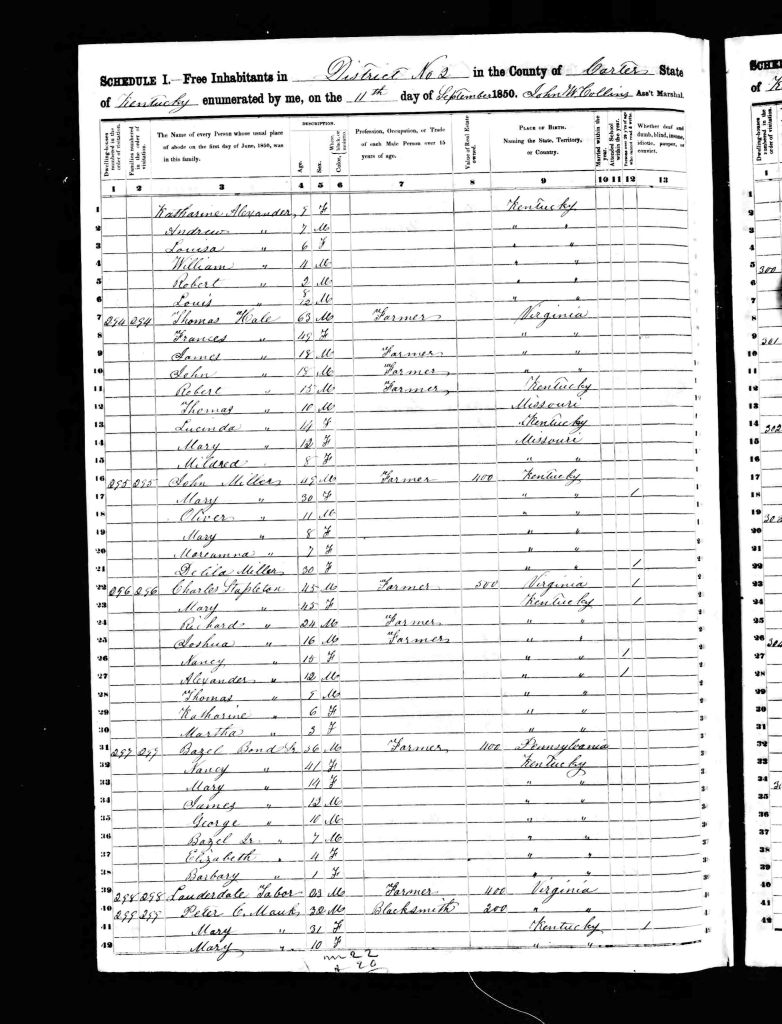 SCHEDULE I.—Free Inhabitants in District No 2 in the County of Carter State
of Kentucky enumerated by me, on the 11th day of September 1850. John W Collins Ass't Marshal.
Dwelling-houses numbered in the order of visitation.
Families numbered in the order of visitation.
The Name of every Person whose usual place of abode on the first day of June, 1850, was in this family.
DESCRIPTION.
Age.
Sex.
Color, White, black, or mulatto.
Profession, Occupation, or Trade of each Male Person over 15 years of age.
Value of Real Estate owned.
PLACE OF BIRTH.
Naming the State, Territory, or Country.
Married within the year.
Attended School within the year.
Persons over 20 y'rs of age who cannot read & write.
Whether deaf and dumb, blind, insane, idiotic, pauper, or convict.
1 2 3 4 5 6 7 8 9 10 11 12 13
1 Katharine Alexander 9 F Kentucky
2 Andrew " 7 M " "
3 Louisa " 6 F " "
4 William " 4 M " "
5 Robert " 2 M " "
6 Louis " 8/12 M " "
7 294 294 Thomas Hale 63 M Farmer Virginia
8 Frances " 49 F " "
9 James " 19 M Farmer " "
10 John " 18 M Farmer " "
11 Robert " 15 M Farmer Kentucky
12 Thomas " 10 M Missouri
13 Lucinda " 14 F Kentucky
14 Mary " 12 F Missouri
15 Mildred " 8 F " "
16 295 295 John Miller 49 M Farmer 400 Kentucky
17 Mary " 30 F " " 1
18 Oliver " 11 M " "
19 Mary " 8 F " "
20 " 7 F " "
21 Delila Miller 30 F " " 1
22 296 296 Charles Stapleton 45 M Farmer 500 Virginia 1
23 Mary " 45 F Kentucky 1
24 Richard " 24 M Farmer " "
25 Joshua " 16 M Farmer " "
26 Nancy " 15 F " " 1
27 Alexander " 12 M " " 1
28 Thomas " 9 M " "
29 Katharine " 6 F " "
30 Martha " 3 F " "
31 297 297 Bazel Bond Sr 56 M Farmer 400 Pennsylvania
32 Nancy " 41 F Kentucky
33 Mary " 14 F " "
34 James " 12 M " "
35 George " 10 M " "
36 Bazel Jr " 7 M " "
37 Elizabeth " 4 F " "
38 Barbary " 1 F " "
39 298 298 Lauderdale Tabor 23 M Farmer 400 Virginia
40 299 299 Peter C. Mauk 32 M Blacksmith 200 " "
41 Mary " 31 F Kentucky 1
42 Mary " 10 F " "
m 22
f 20
300
301
302